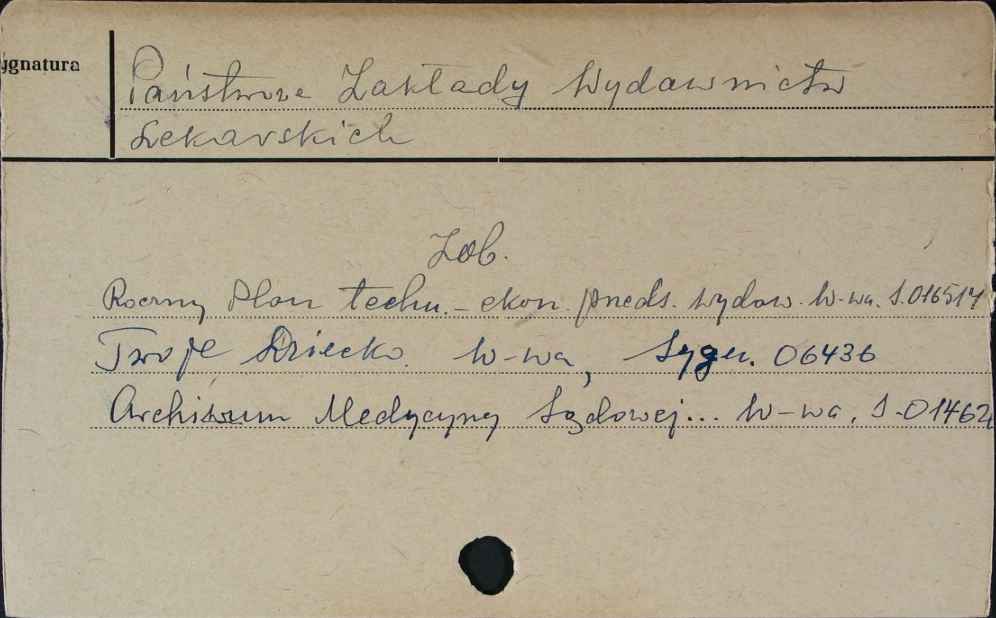 ygnatura
Państwowe Zakłady Wydawnictw
Lekarskich
Zob.
Roczny Plan techn.-ekon. przeds. wydaw. W-wa. S.016517
Twoje Dziecko. W-wa, Sygn. 06436
Archiwum Medycyny Sądowej... W-wa. S-01462